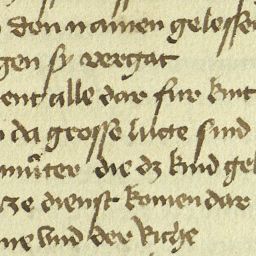 den namen gelesse
gen sy vergat
ent alle dar fur kint
da grosse lute sind
muter die dz kind gel
ze dienst komen dar
me vnd der kirche